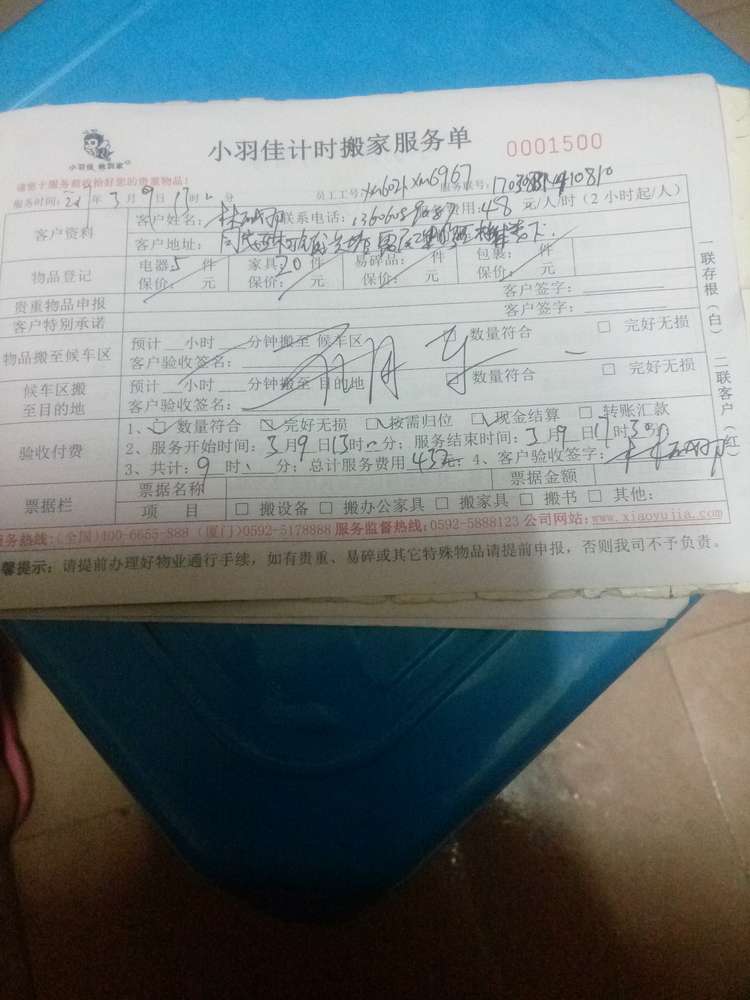 小羽佳计时搬家服务单 0001500
小羽佳 教到家
请您于服务前收拾好您的贵重物品!
服务时间: 年 3 月 9 日 13 时 分 员工工号: xm6021 xm6967 服务联号:
客户资料
客户姓名: 联系电话: 费用: 48 元/人/时(2 小时起/人)
客户地址:
物品登记
电器 5 件 家具 20 件 易碎品: 件 包裹: 件
保价: 元 保价: 元 保价: 元 保价: 元
贵重物品申报 客户签字:
客户特别承诺 客户签字:
物品搬至候车区
预计 小时 分钟搬至 候车区 □ 数量符合 □ 完好无损
客户验收签名:
候车区搬至目的地
预计 小时 分钟搬至 目的地 □ 数量符合 □ 完好无损
客户验收签名:
验收付费
1、☑ 数量符合 ☑ 完好无损 ☑ 按需归位 ☑ 现金结算 □ 转账汇款
2、服务开始时间: 3 月 9 日 13 时 分; 服务结束时间: 3 月 9 日 17 时 30 分
3、共计: 9 时 分; 总计服务费用 432 元; 4、客户验收签字:
票据栏
票据名称 票据金额
项 目 □ 搬设备 □ 搬办公家具 □ 搬家具 □ 搬书 □ 其他:
服务热线:(全国)400-6655-888 (厦门)0592-5178888 服务监督热线:0592-5888123 公司网站:www.xiaoyujia.com
馨提示: 请提前办理好物业通行手续, 如有贵重、易碎或其它特殊物品请提前申报, 否则我司不予负责。
一联存根(白) 二联客户(红)